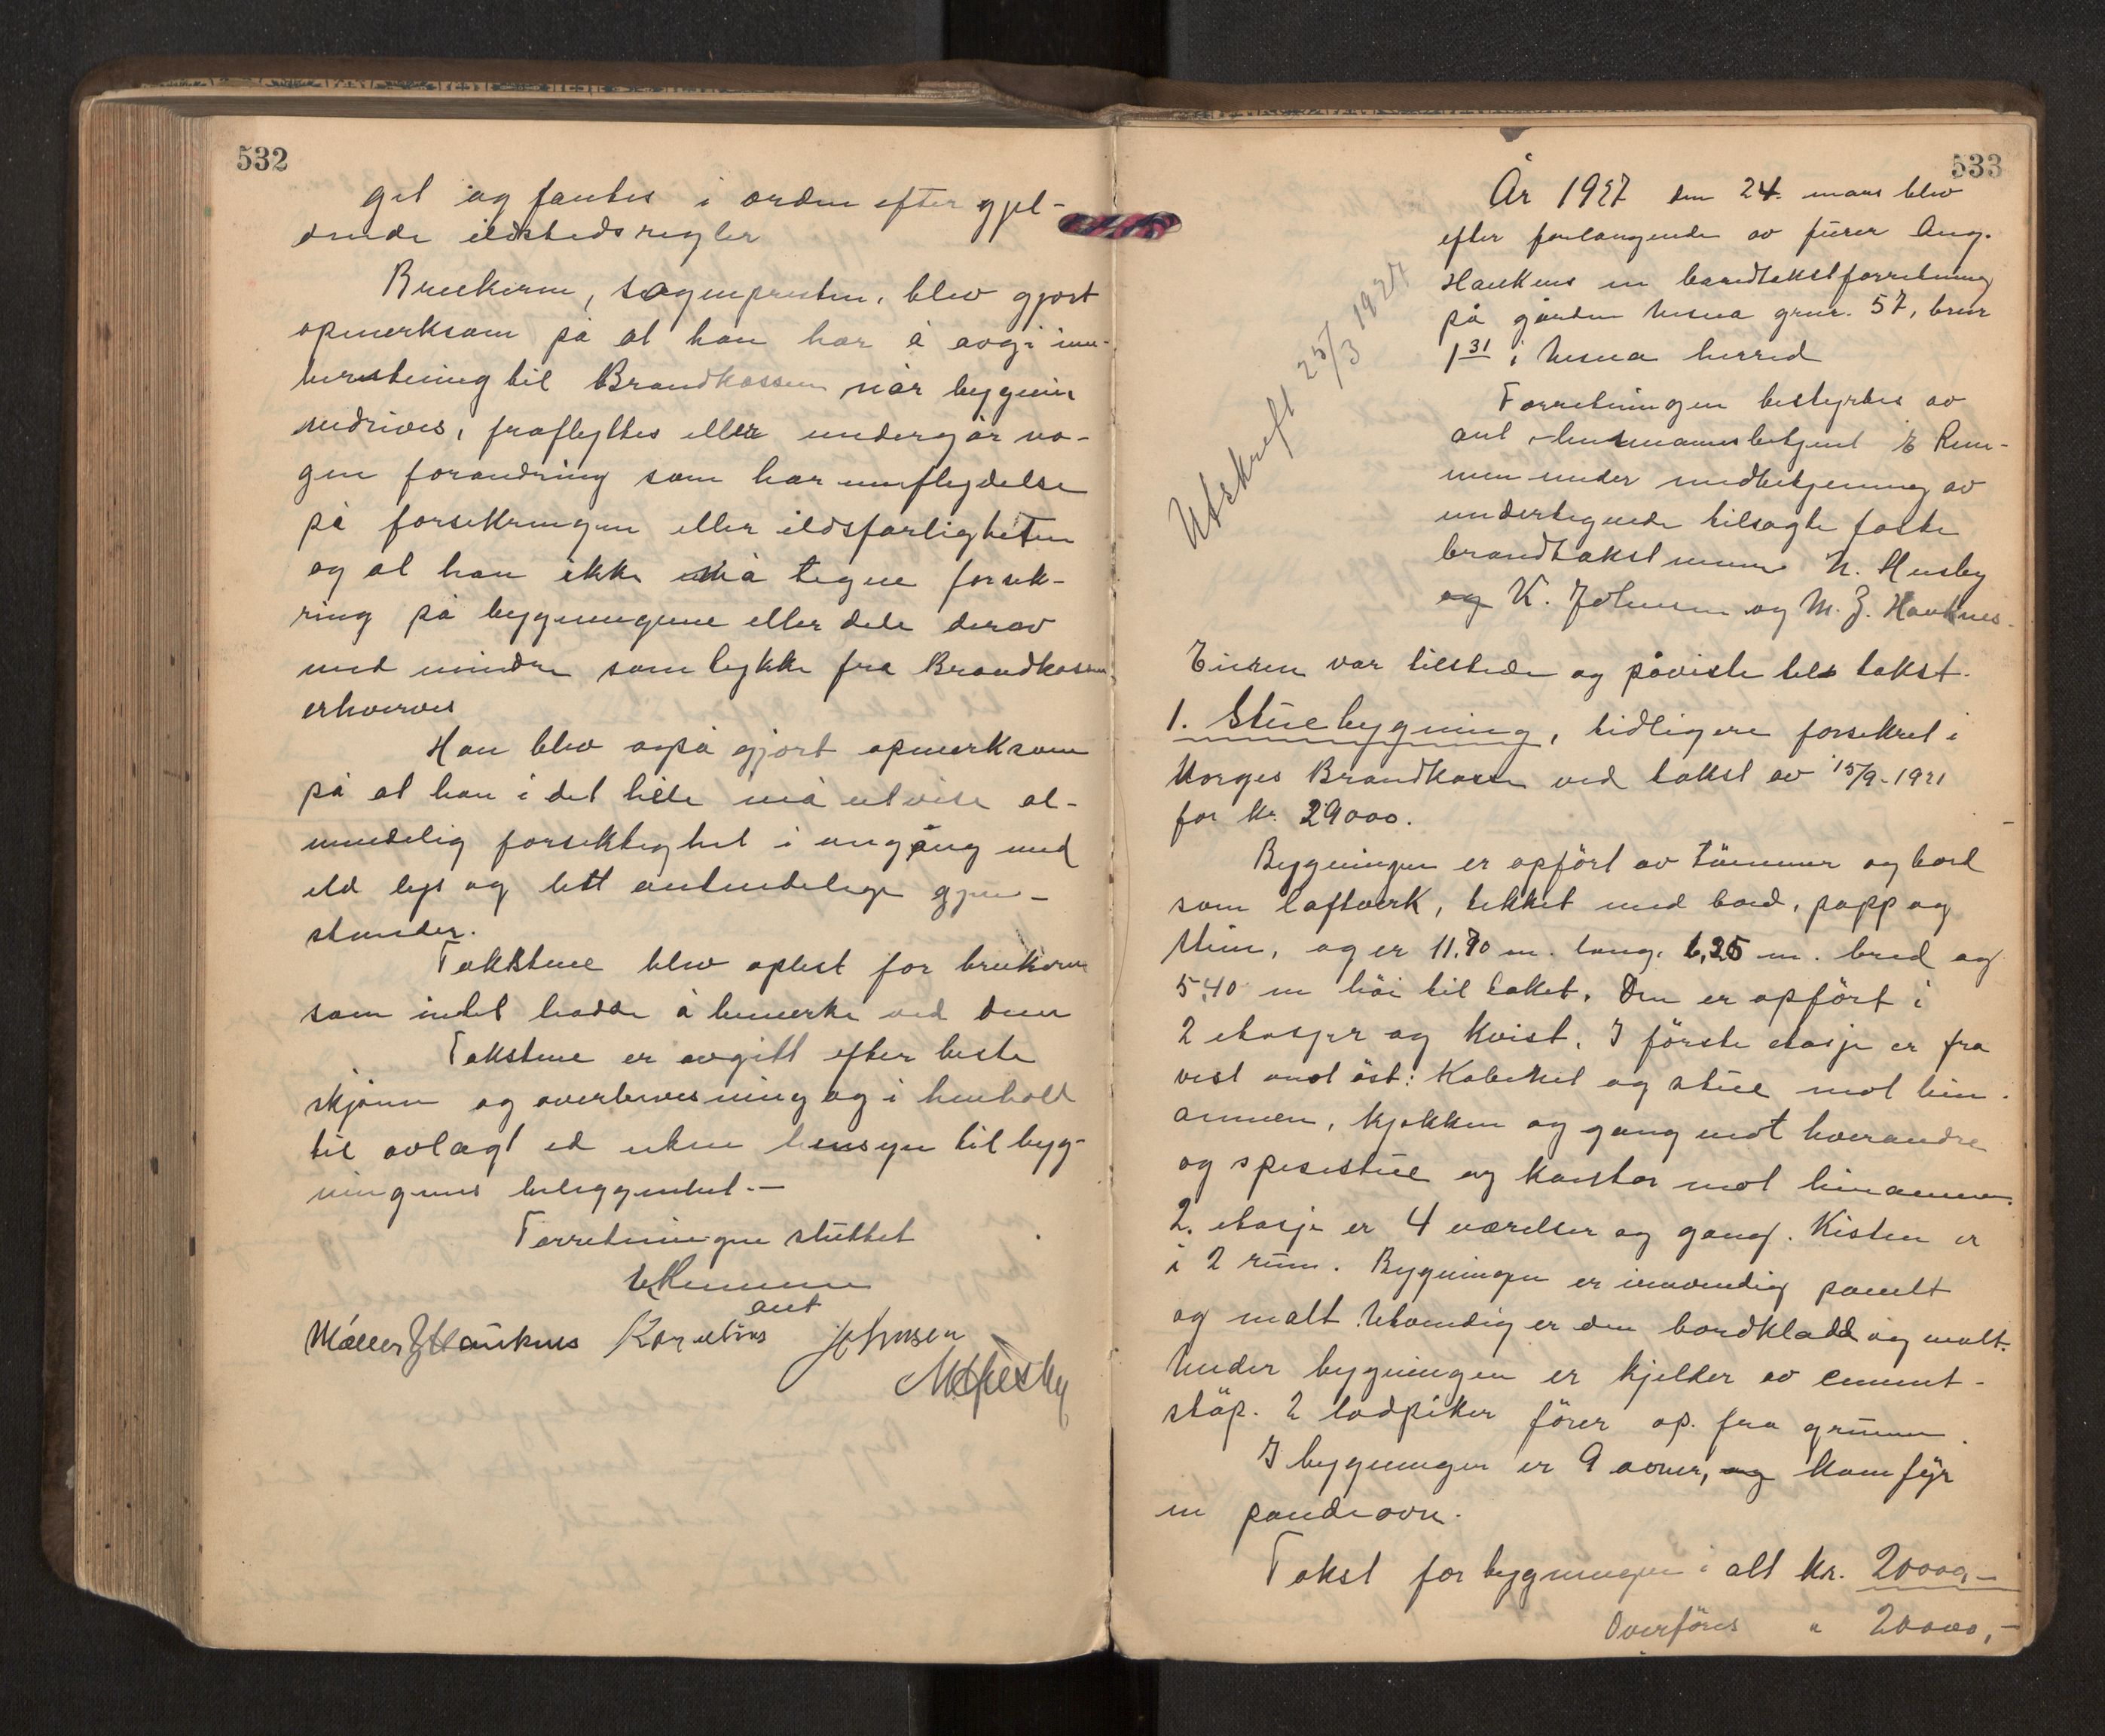 532
get og fantes i orden efter gjel-
dende ildstedsregler
Brukeren, sognepresten, blev gjort
opmerksom på at han har å avgi inn-
beretning til Brandkassen når bygnin
nedrives, fraflyttes eller undergår no-
gen forandring som har innflydelse
på forsikringen eller ildsfarligheten
og at han ikke må tegne forsik-
ring på bygningene eller dele derav
med mindre samtykke fra Brandkassen
erhverves
Han blev også gjort opmerksom
på at han i det hele må utvise al-
mindelig forsiktighet i omgang med
ild lys og lett antendelige gjen-
stander.
Takstene blev oplest for brukeren
som intet hadde å bemerke ved dem
Takstene er avgitt efter beste
skjønn og overbevisning og i henhold
til avlagt ed uten hensyn til byg-
ningenes beliggenhet.—
Forretningen sluttet
E Remmen
aut
Møller Z Hauknes Kornelius Johnsen
N Husby
533
Utskrift 25/3 1927
År 1927 den 24. mars blev
efter forlangende av eieren Aug.
Haukenes en brandtakstforretning
på gården Nesna grnr. 57, brnr
1 31 i Nesna herred
Forretningen bestyrtes av
aut lensmannsbetjent E Rem-
men under medbetjening av
undertegnede tilsagte faste
brandtakstmenn N. Husby
og K. Johnsen og M. Z. Hauknes.
Eieren var tilstede og påviste til takst.
1. Stuebygning, tidligere forsikret i
Norges Brandkasse ved takst av 15/9-1921
for kr. 29000.
Bygningen er opført av tømmer og bord
som laftverk, tekket med bord, papp og
sten, og er 11.70 m. lang, 6,25 m. bred og
5,40 m høi til taket. Den er opført i
2 etasjer og kvist. I første etasje er fra
vest mot øst: Kabinet og stue mot hin-
annen, kjøkken og gang mot hverandre
og spisestue og kontor mot hinannen.
2. etasje er 4 værelser og gang. Kisten er
i 2 rum. Bygningen er innvendig panelt
og malt. Utvendig er den bordkladd og malt.
Under bygningen er kjelder av cement-
støp. 2 lodpiker fører op fra grunnen.
I bygningen er 9 ovner, og komfyr
en pandeovn.
Takst for bygningen i alt kr. 20000,-
Overføres " 20000,-